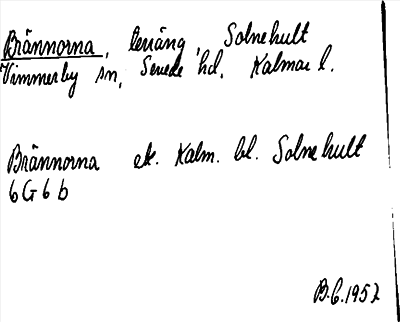 Brännorna, leräng, Solnehult
Vimmerby sn, Sevede hd, Kalmar l.
Brännorna ek. Kalm. bl. Solnehult
6G6b
B.C.1952